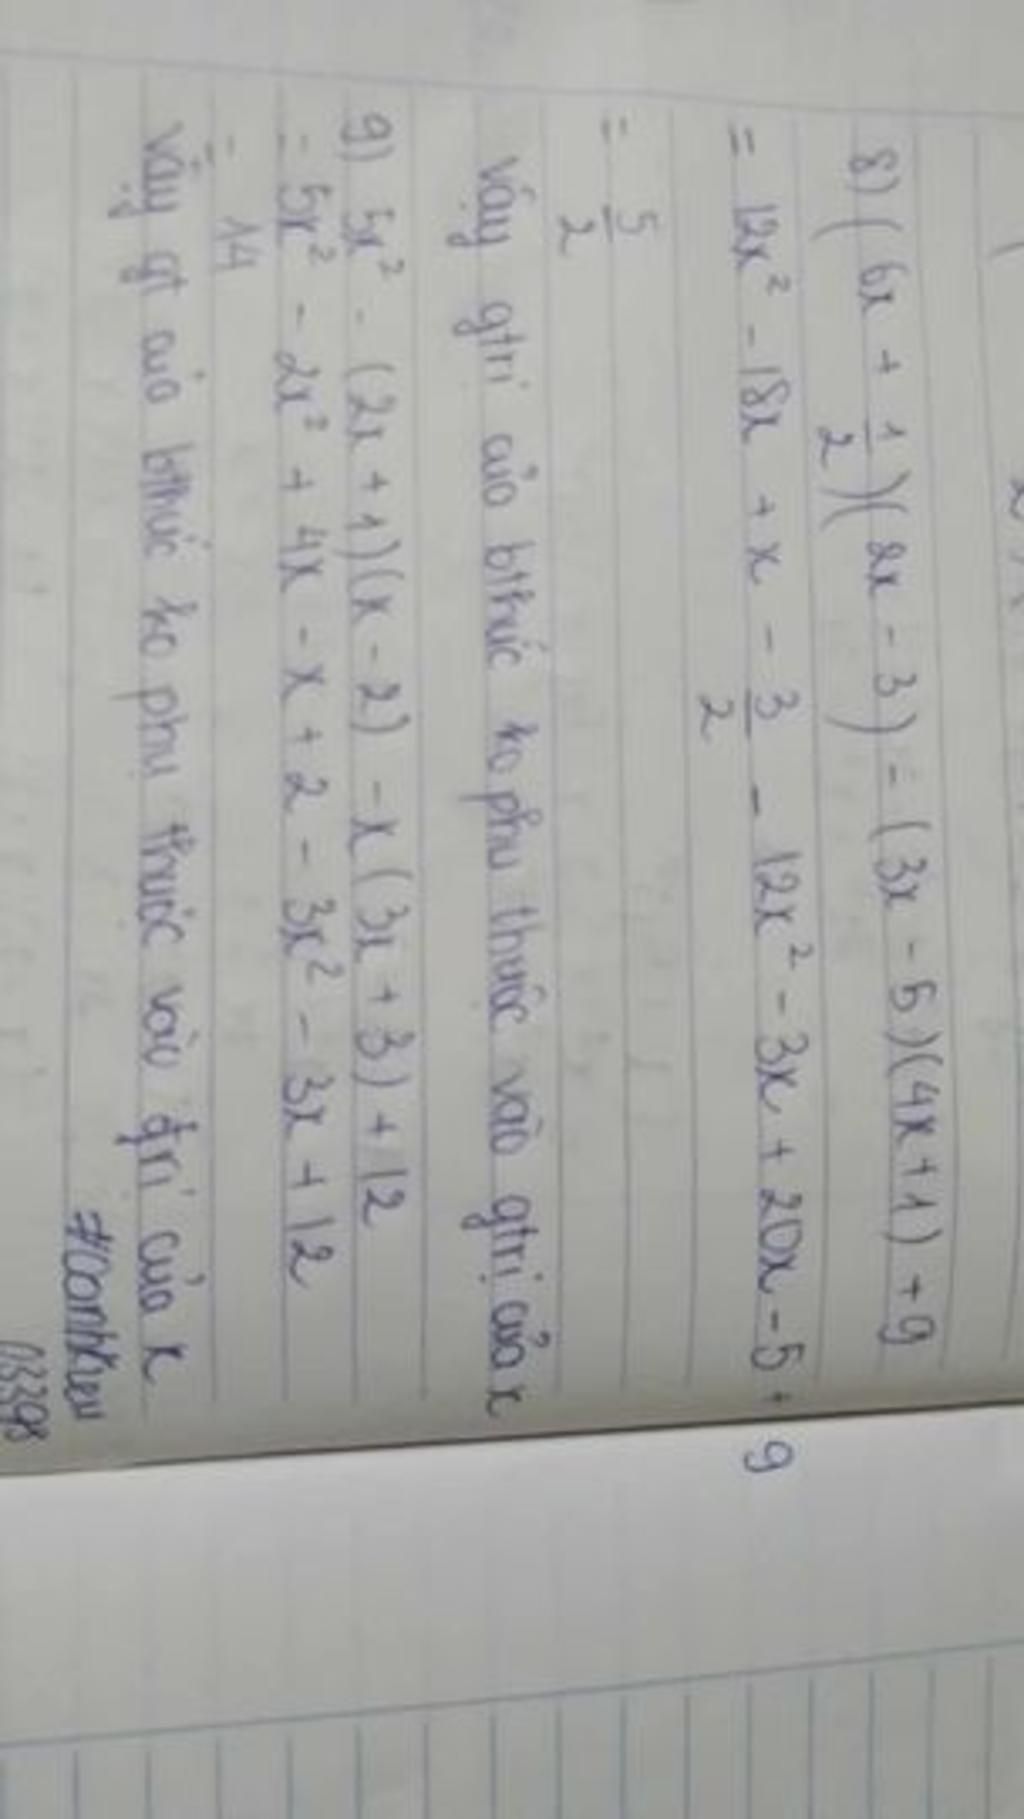 8) (6x + 1/2)(2x - 3) - (3x - 5)(4x + 1) + 9
= 12x² - 18x + x - 3/2 - 12x² - 3x + 20x - 5 + 9
= 5/2
Vậy gtrị của bthức ko phụ thuộc vào gtrị của x
9) 5x² - (2x + 1)(x - 2) - x(3x + 3) + 12
= 5x² - 2x² + 4x - x + 2 - 3x² - 3x + 12
= 14
Vậy gt của bthức ko phụ thuộc vào gtrị của x